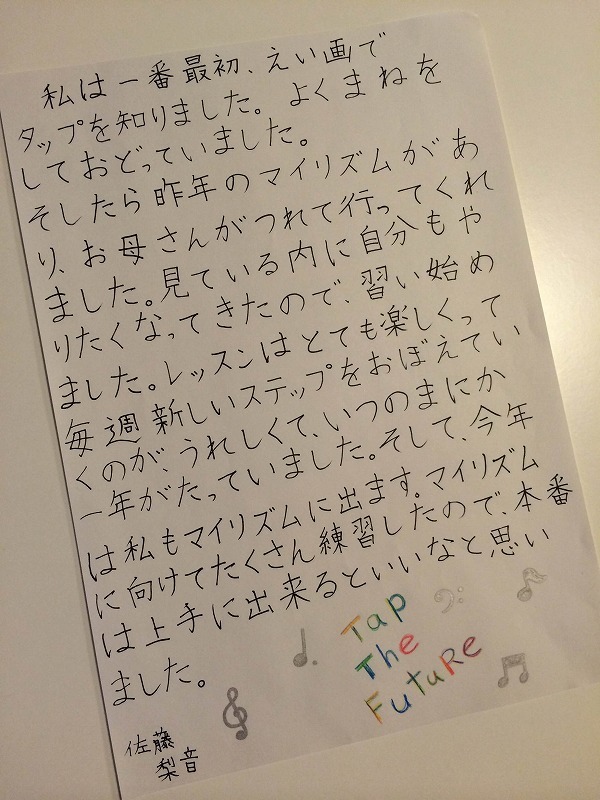 私は一番最初、えい画で
タップを知りました。よくまねを
しておどっていました。
そしたら昨年のマイリズムがあ
り、お母さんがつれて行ってくれ
ました。見ている内に自分もや
りたくなってきたので、習い始め
ました。レッスンはとても楽しくって
毎週新しいステップをおぼえてい
くのが、うれしくて、いつのまにか
一年がたっていました。そして、今年
は私もマイリズムに出ます。マイリズム
に向けてたくさん練習したので、本番
は上手に出来るといいなと思い
ました。
Tap
The
Future
佐藤
梨音